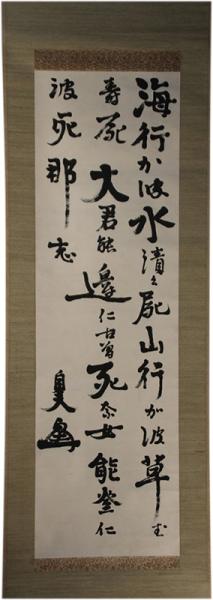 海行か波水漬く屍山行か波草む
壽屍大君能邊仁古曽死奈女能登仁
波死那志